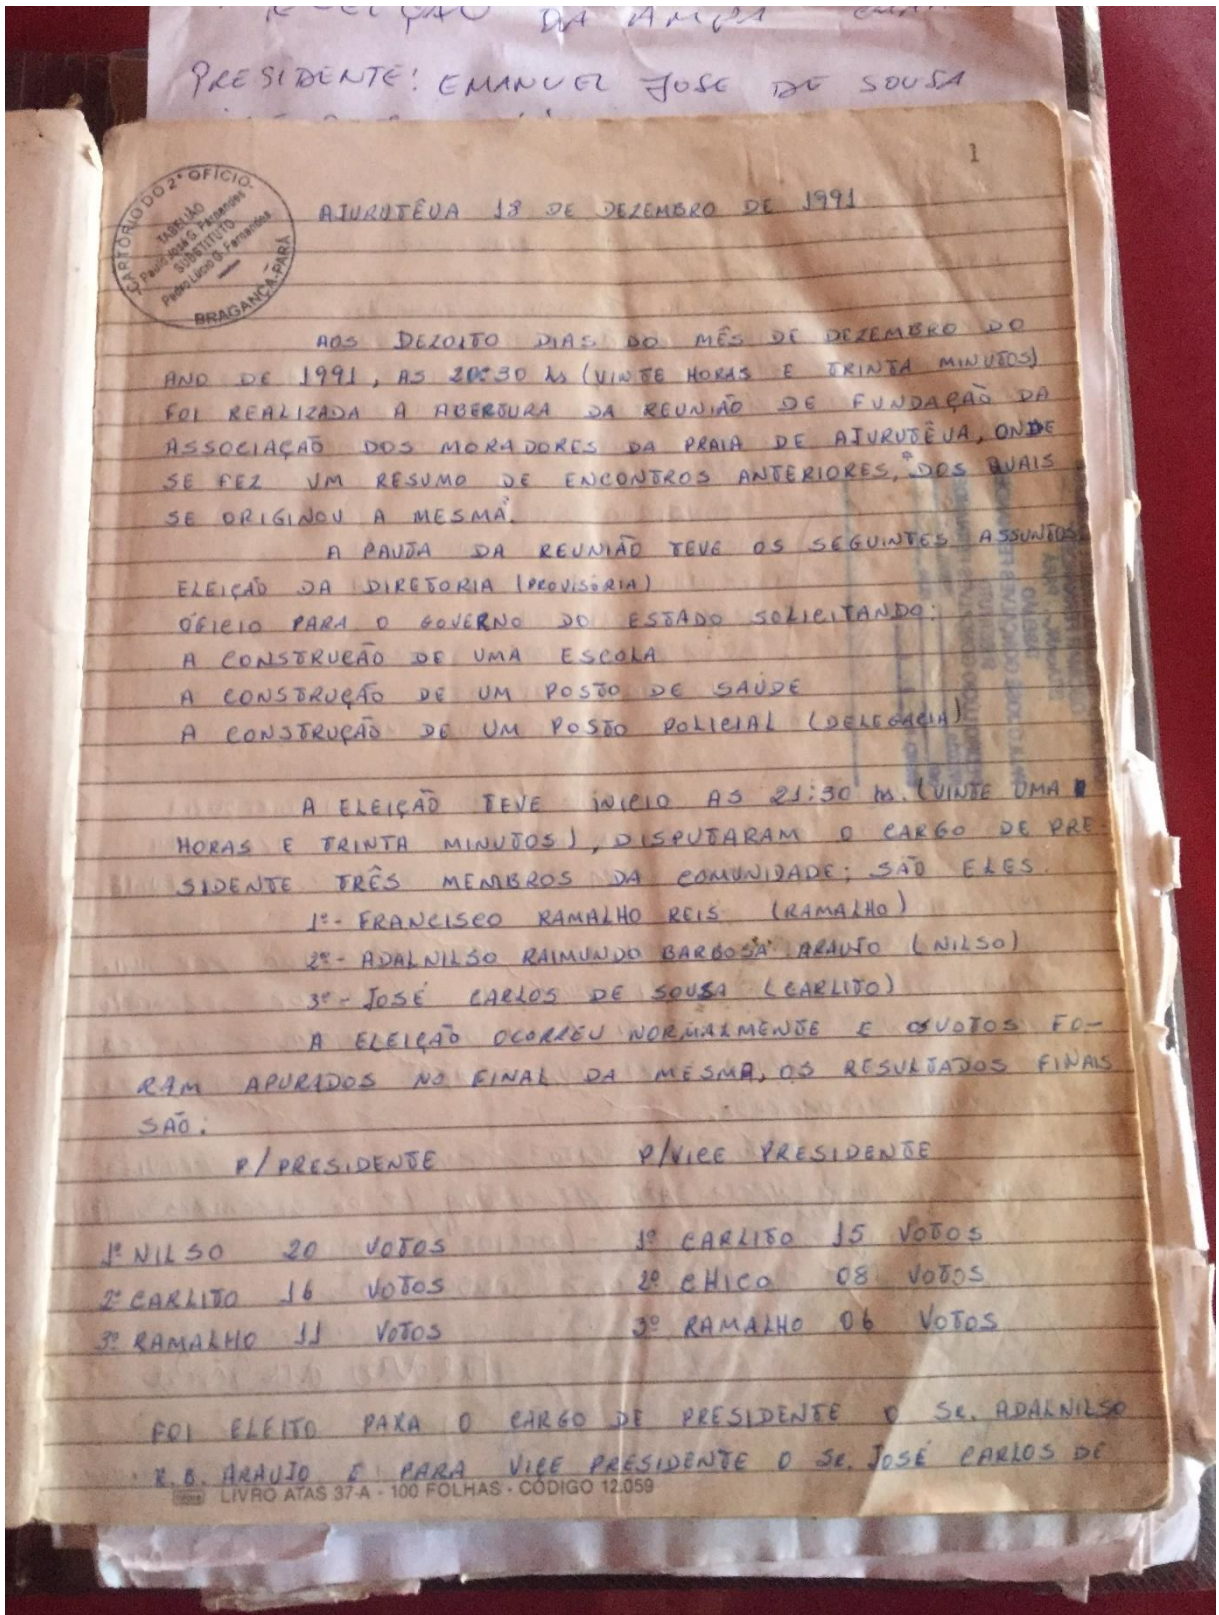 DA AMPA
PRESIDENTE: EMANUEL JOSE DE SOUSA
1
CARTÓRIO DO 2º OFÍCIO
TABELIÃO
Paulo José G. Fernandes
SUBSTITUTO
Pedro Lúcio G. Fernandes
BRAGANÇA-PARÁ
AJURUTÊUA 18 DE DEZEMBRO DE 1991
AOS DEZOITO DIAS DO MÊS DE DEZEMBRO DO
ANO DE 1991, AS 20:30 hs (VINTE HORAS E TRINTA MINUTOS)
FOI REALIZADA A ABERTURA DA REUNIÃO DE FUNDAÇÃO DA
ASSOCIAÇÃO DOS MORADORES DA PRAIA DE AJURUTÊUA, ONDE
SE FEZ UM RESUMO DE ENCONTROS ANTERIORES, DOS QUAIS
SE ORIGINOU A MESMA.
A PAUTA DA REUNIÃO TEVE OS SEGUINTES ASSUNTOS
ELEIÇÃO DA DIRETORIA (PROVISÓRIA)
OFICIO PARA O GOVERNO DO ESTADO SOLICITANDO:
A CONSTRUÇÃO DE UMA ESCOLA
A CONSTRUÇÃO DE UM POSTO DE SAÚDE
A CONSTRUÇÃO DE UM POSTO POLICIAL (DELEGACIA)
A ELEIÇÃO TEVE INICIO AS 21:30 hs. (VINTE UMA
HORAS E TRINTA MINUTOS), DISPUTARAM O CARGO DE PRE-
SIDENTE TRÊS MEMBROS DA COMUNIDADE; SÃO ELES.
1º - FRANCISCO RAMALHO REIS (RAMALHO)
2º - ADALNILSO RAIMUNDO BARBOSA ARAUJO (NILSO)
3º - JOSÉ CARLOS DE SOUSA (CARLITO)
A ELEIÇÃO OCORREU NORMALMENTE E OS VOTOS FO-
RAM APURADOS NO FINAL DA MESMA, OS RESULTADOS FINAIS
SÃO:
P/PRESIDENTE P/VICE PRESIDENTE
1º NILSO 20 VOTOS 1º CARLITO 15 VOTOS
2º CARLITO 16 VOTOS 2º CHICO 08 VOTOS
3º RAMALHO 11 VOTOS 3º RAMALHO 06 VOTOS
FOI ELEITO PARA O CARGO DE PRESIDENTE O Sr. ADALNILSO
R. B. ARAUJO E PARA VICE PRESIDENTE O Sr. JOSÉ CARLOS DE
LIVRO ATAS 37-A - 100 FOLHAS - CÓDIGO 12.059